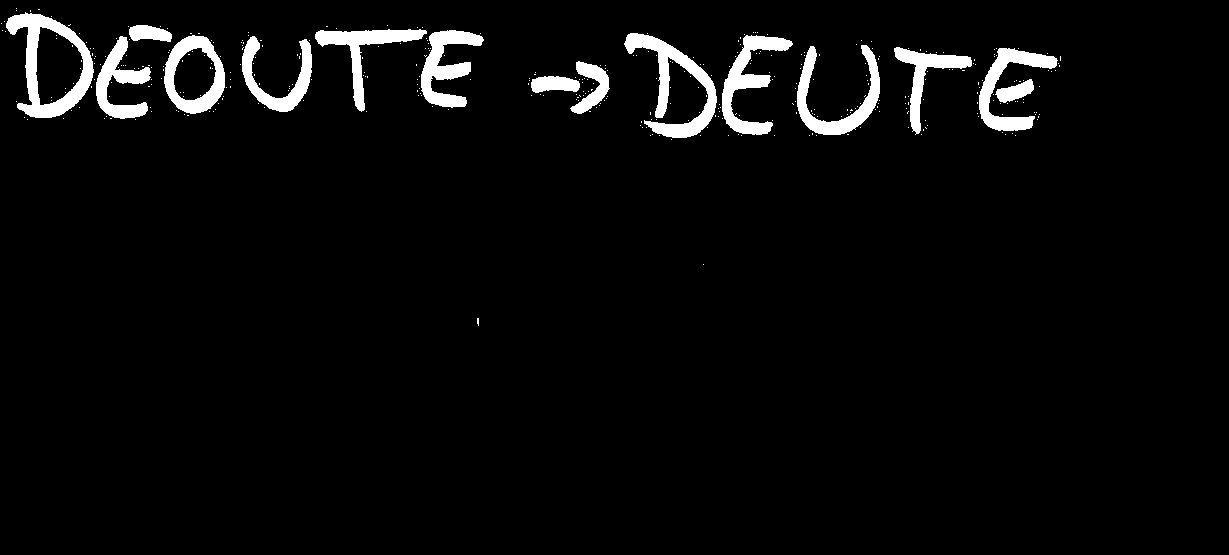 DEOUTE → DEUTE